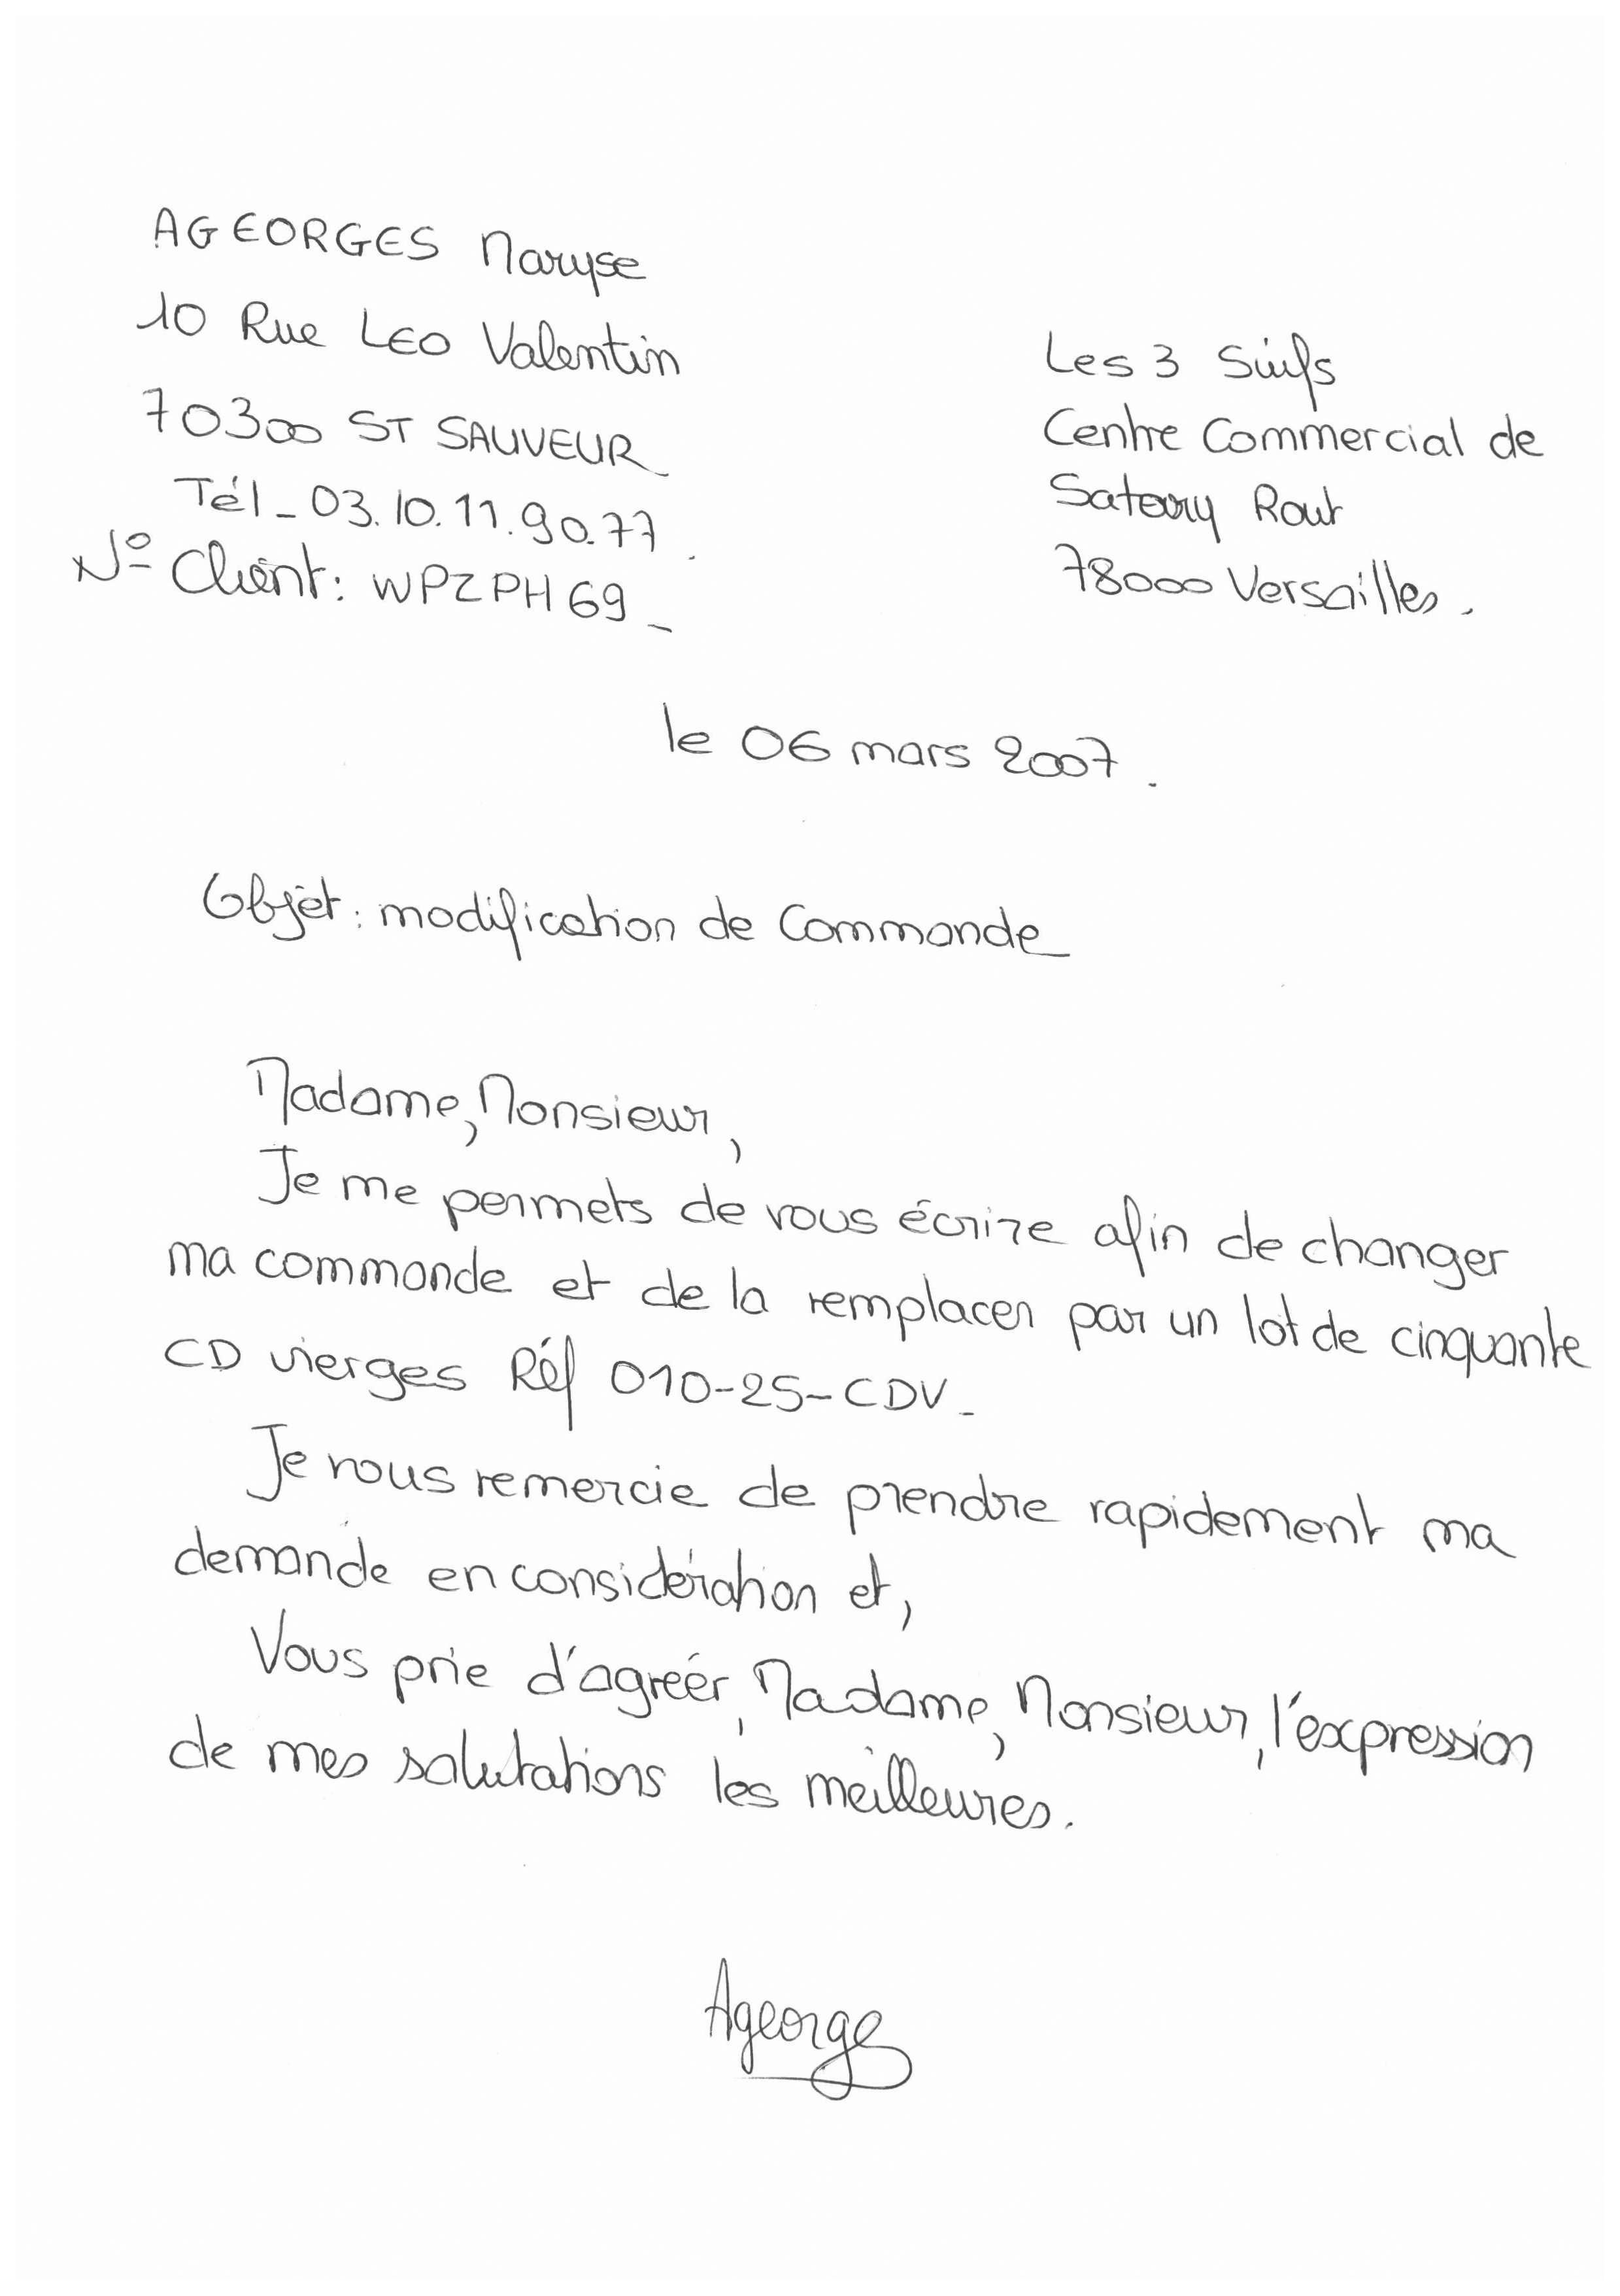 AGEORGES Maryse
10 Rue LEO Valentin
70300 ST SAUVEUR
Tél_ 03.10.11.90.77.
N° Client: WPZPH69_
Les 3 Suifs
Centre Commercial de
Satory Rout
78000 Versailles.
le 06 mars 2007.
Objet: modification de Commande
Madame, Monsieur,
Je me permets de vous écrire afin de changer
ma commande et de la remplacer par un lot de cinquante
CD vierges Réf 010-25-CDV_
Je vous remercie de prendre rapidement ma
demande en considération et,
Vous prie d'agréér, Madame, Monsieur, l'expression
de mes salutations les meilleures.
Ageorges